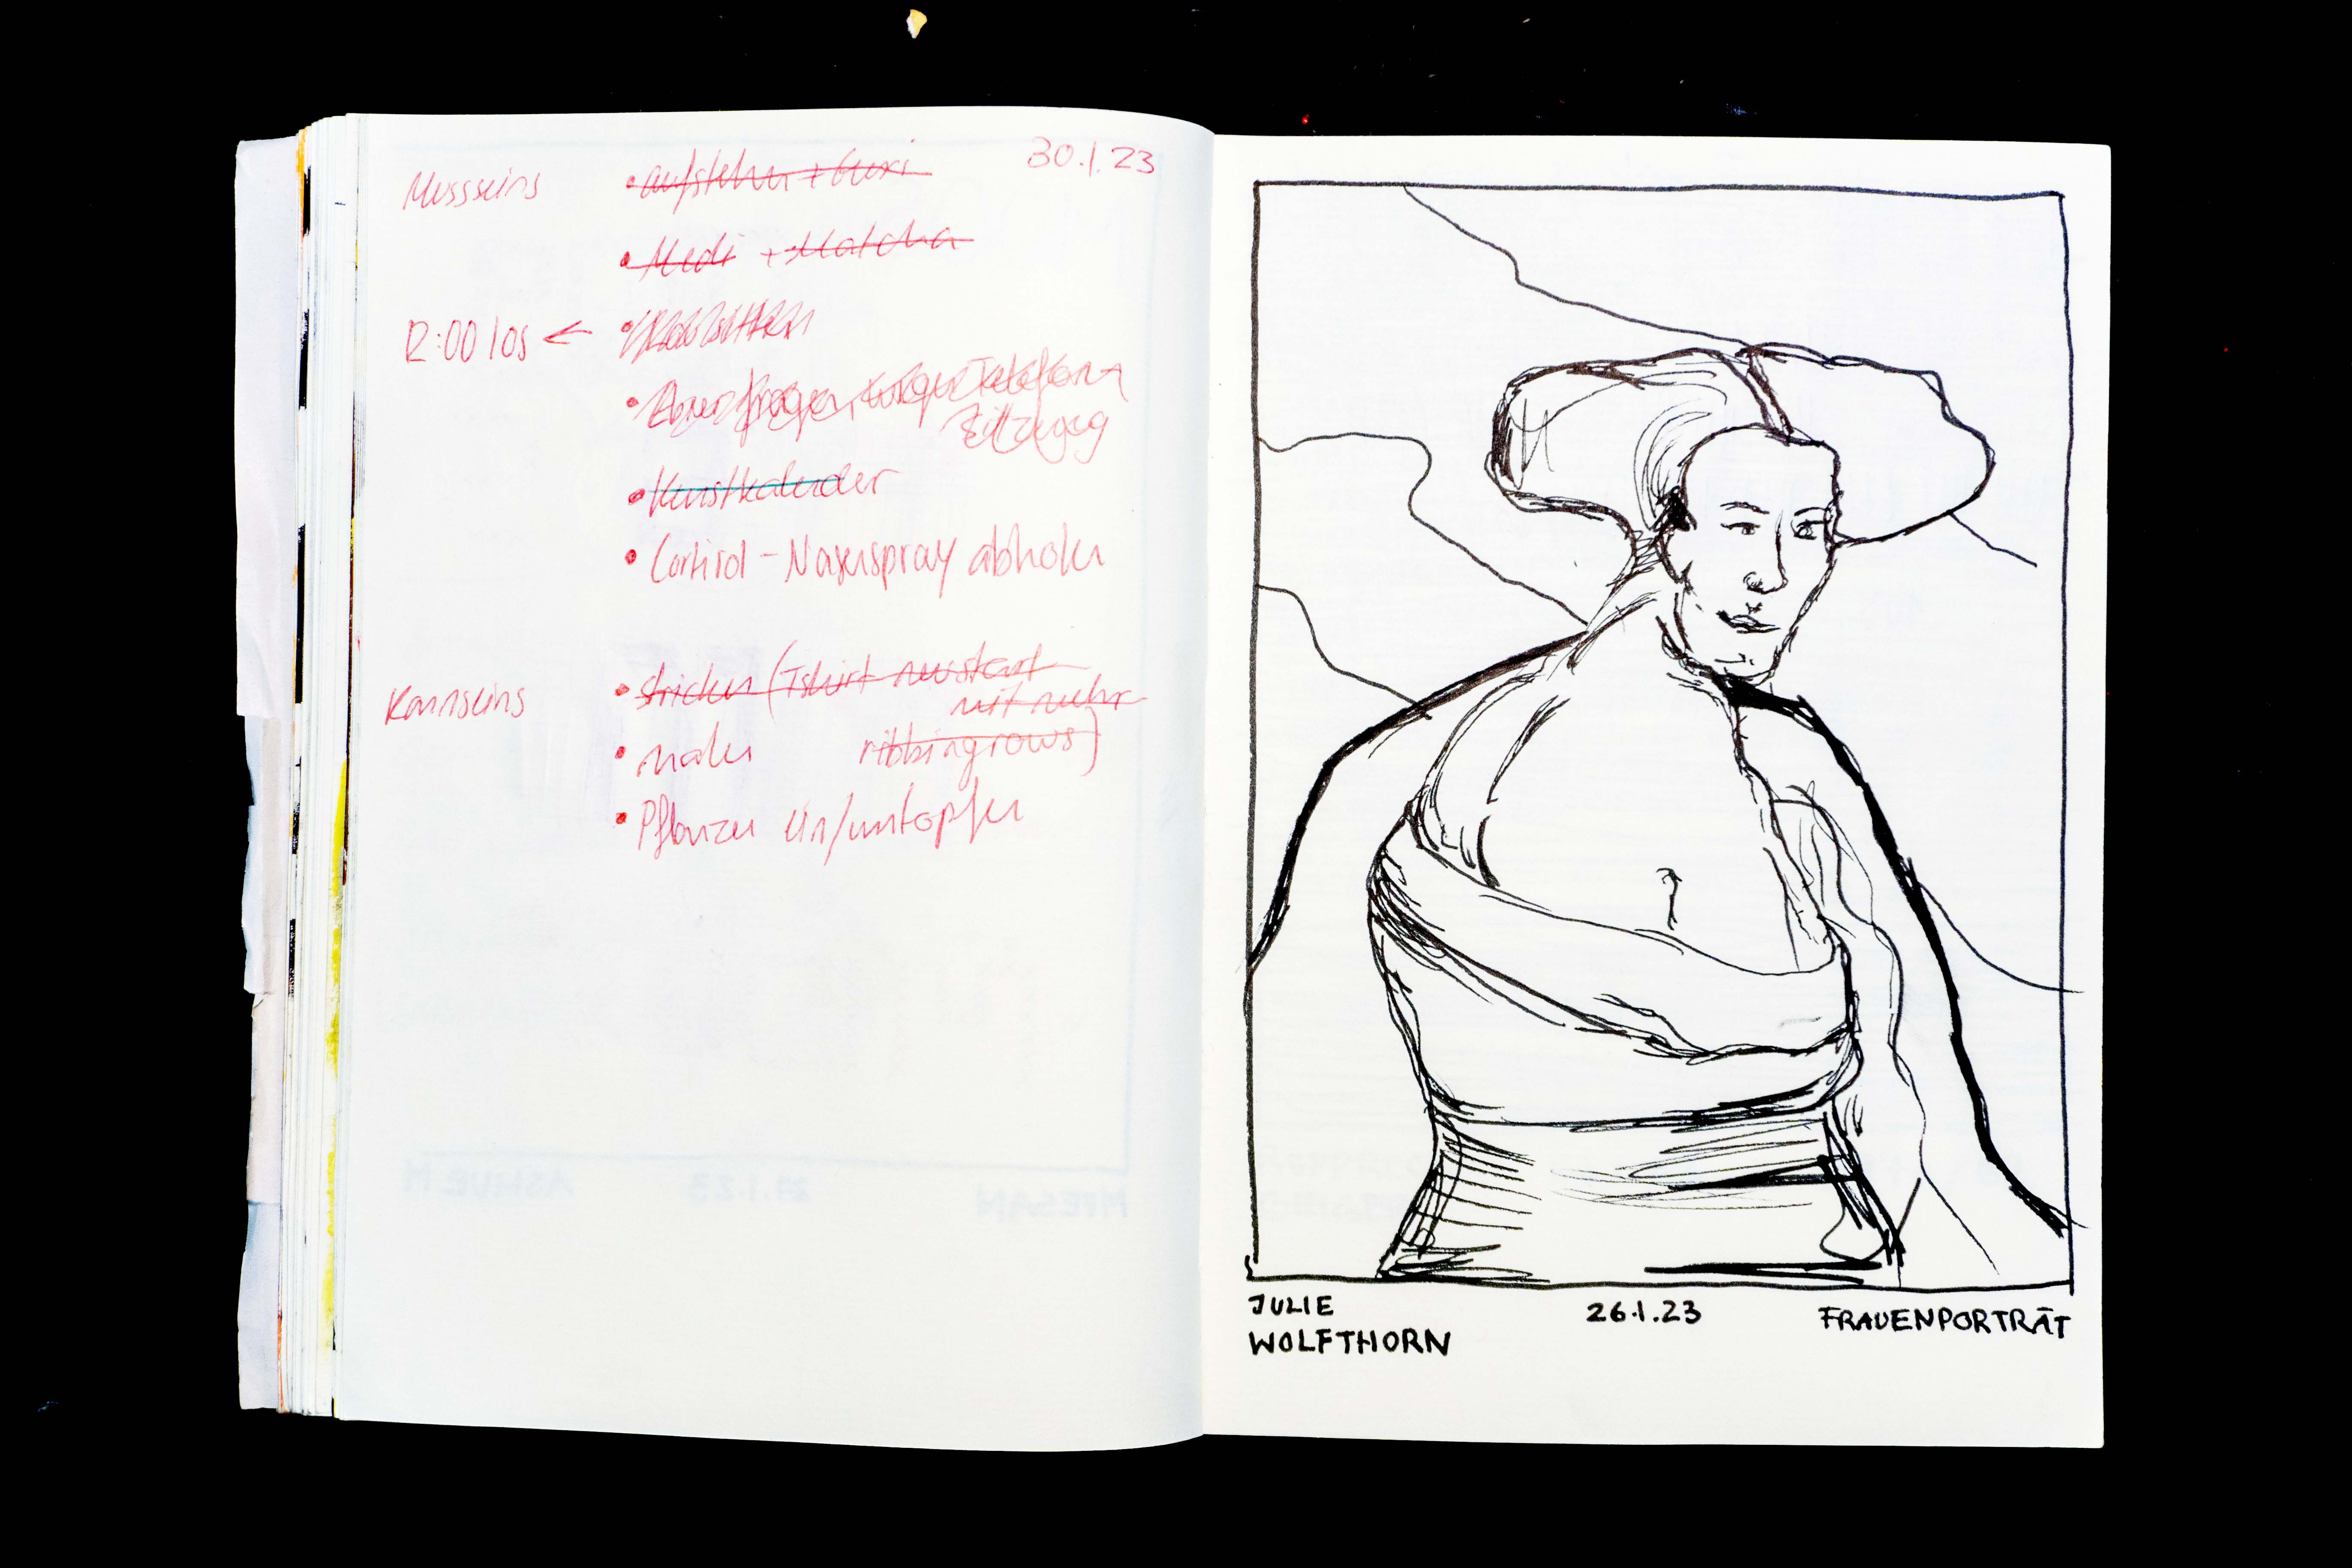 30.1.23
Mussseins
• aufstehn +
• Medi + Matcha
12:00 los ←
•
• fragen, Telefon
• Kunstkalender
• Cortisol - Nasenspray abholen
Kannseins
• stricken (Tshirt neustart
mit mehr
ribbingrows)
• malen
• Pflanzen ein/umtopfen
JULIE
WOLFTHORN
26.1.23
FRAUENPORTRÄT